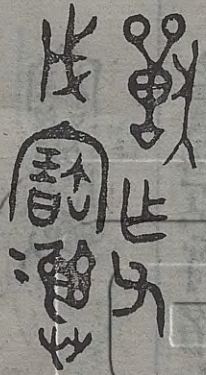 獸乍父
戊寶尊